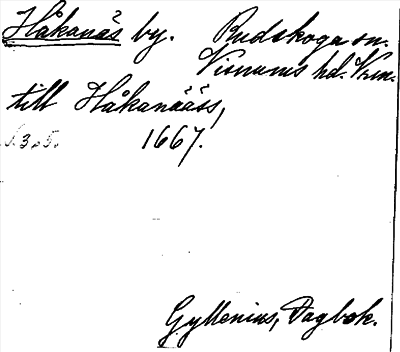 Håkanäs by. Rudskoga sn.
Visnums hd. Vrm.
till Håkanääss,
s. 305. 1667.
Gyllenius, Dagbok.